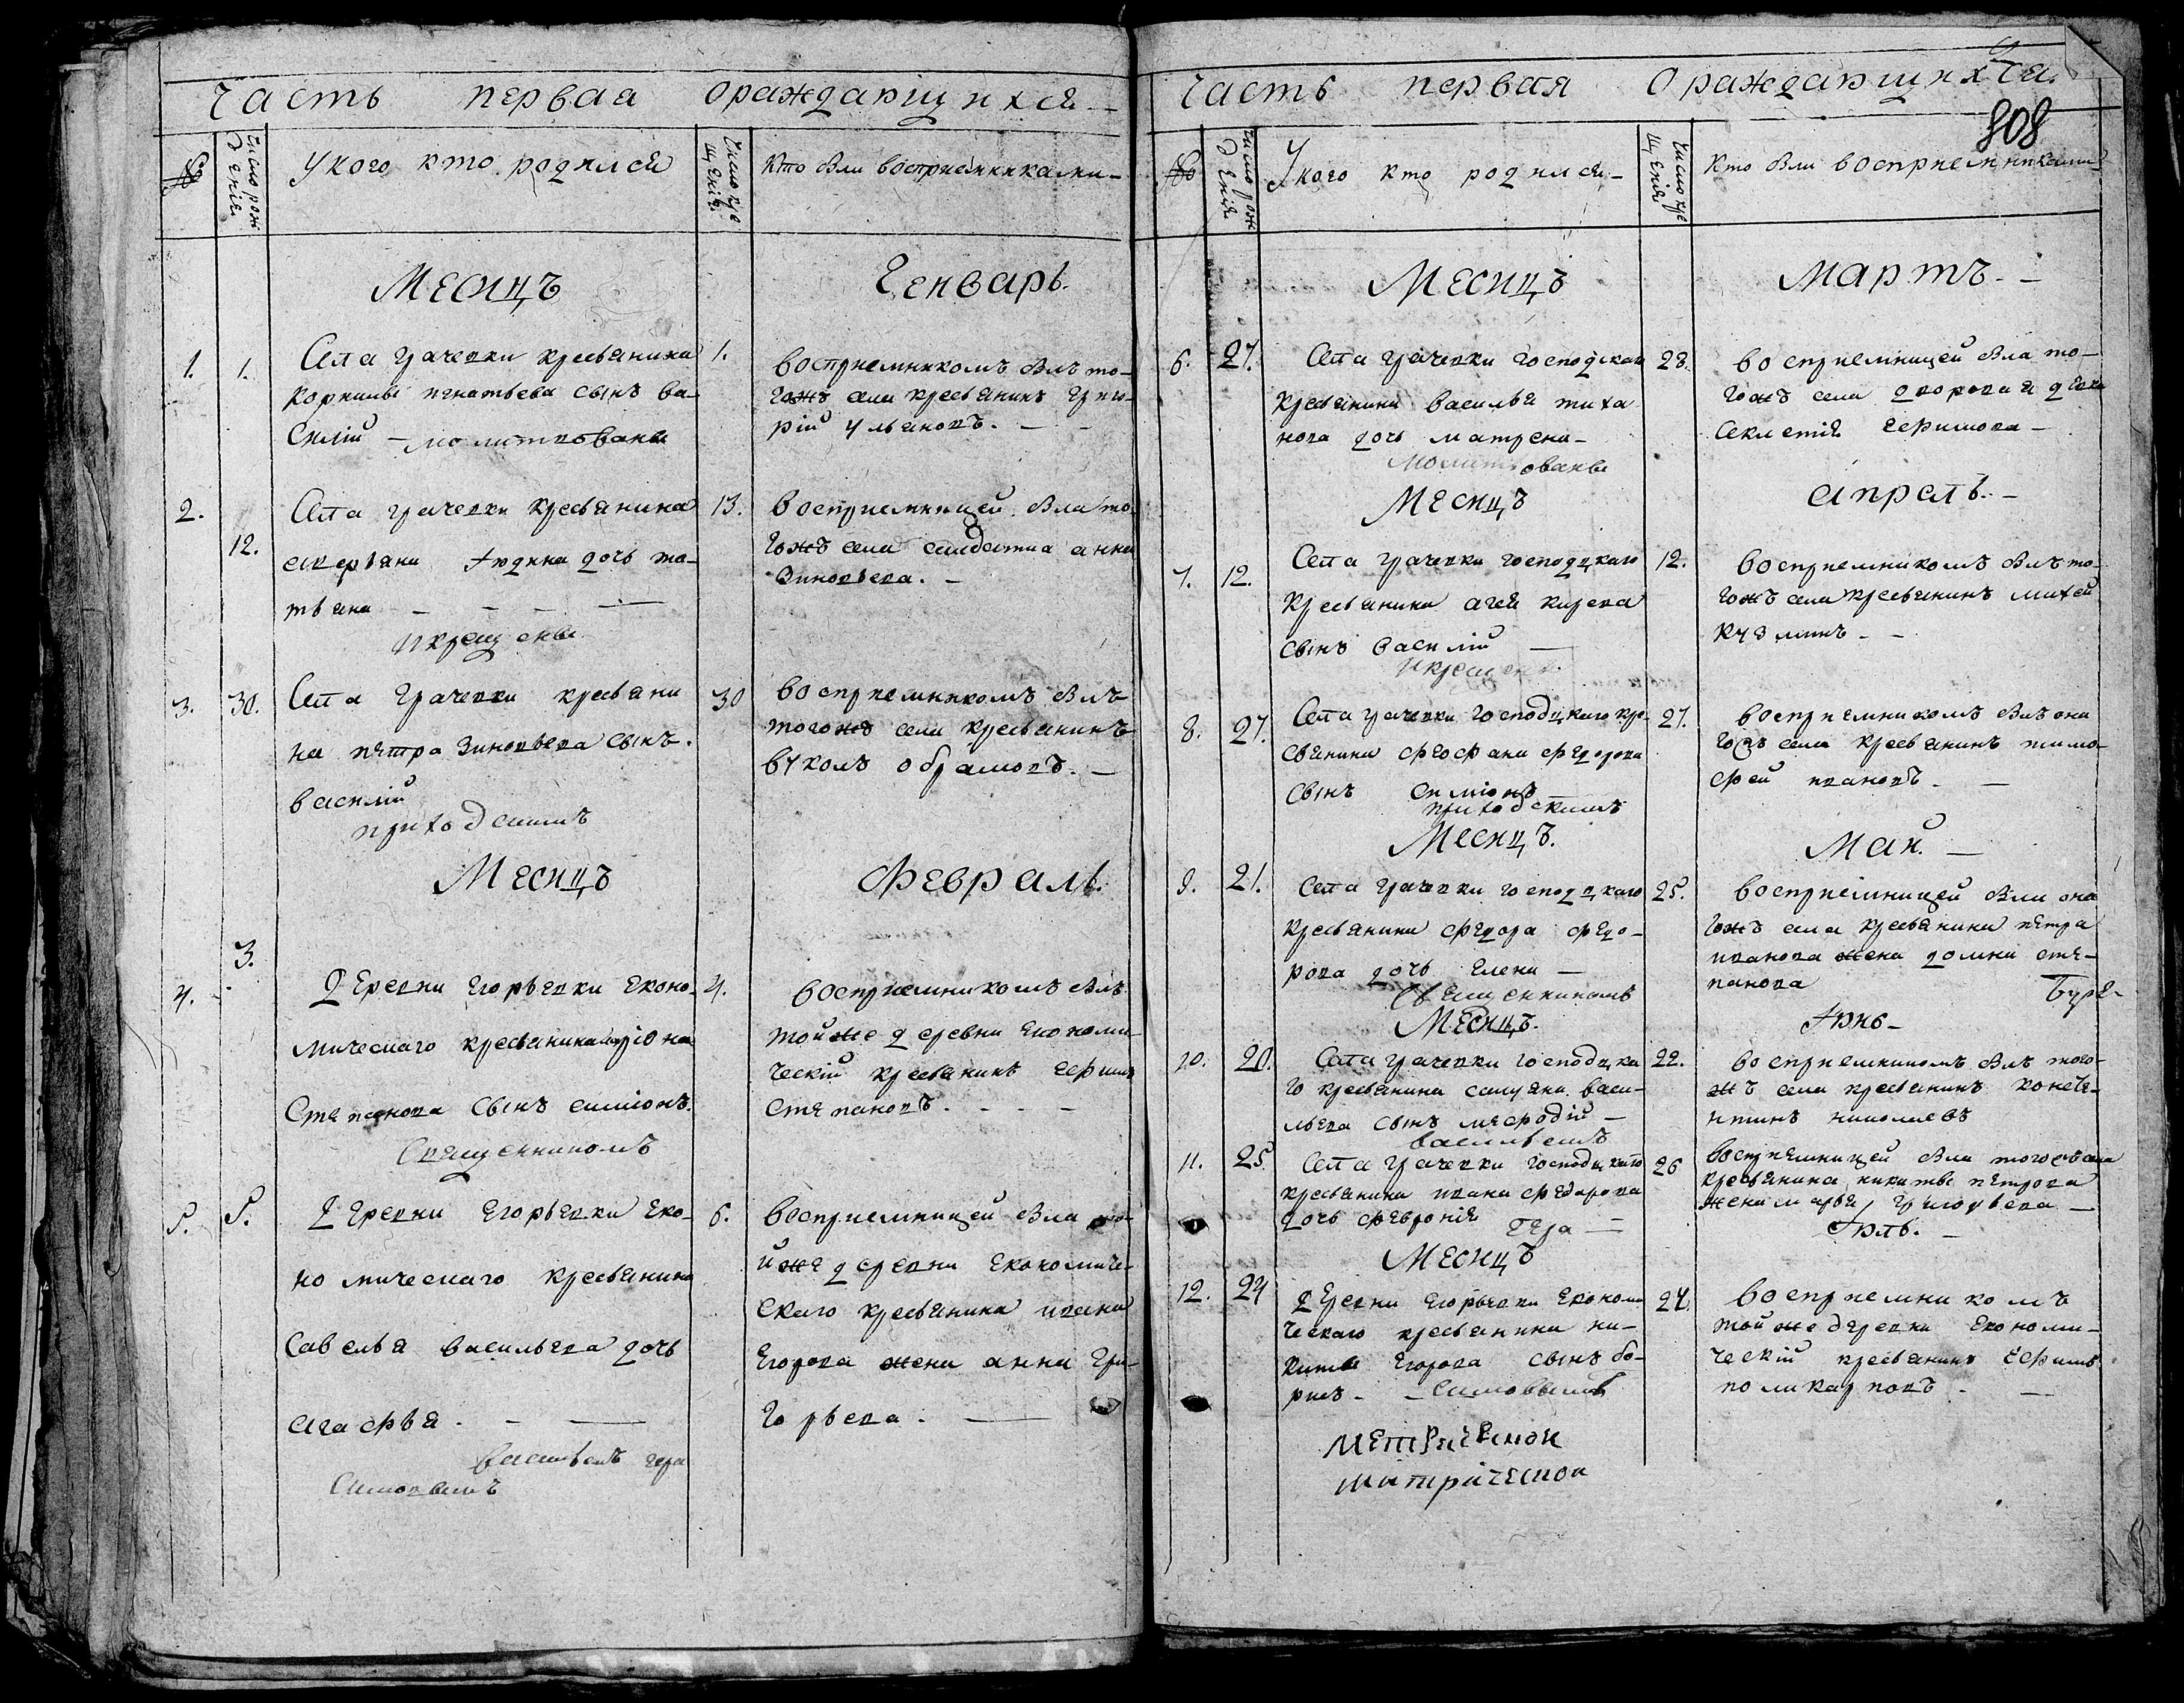 Часть первая ораждающихся
№
Число рож
дения
У кого кто родился
Число кре
щения
Кто был восприемниками
Месицъ
Генварь.
1. 1.
Села грачевки крестьянина
корнилы игнатьева сынъ ва-
силій – молитвованы
1.
восприемникомъ былъ то-
гожъ села крестьянинъ григо-
рій ульяновъ.
2. 12.
Села грачевки крестьянина
аверьяна юдина дочь та-
тьяна
и крещены
13.
восприемницей была то-
гожъ села анна
зиновьева.
3. 30.
Села Грачевки крестьяни
на петра зиновьева сынъ.
василій
приходскимъ
30
восприемникомъ былъ
тогожъ села крестьянинъ
вуколъ обрамовъ.
Месицъ
Февраль.
4. 3.
Деревни Егорьевки Еконо-
мическаго крестьянина
Степанова сынъ симионъ.
Священникомъ
4.
восприемникомъ былъ
тойже деревни Економи-
ческій крестьянинъ ефимъ
степановъ.
5. 5.
Деревни Егорьевки Еко-
номическаго крестьянина
савелья васильева дочь
агафья.
васильемъ гера
симовымъ
6.
восприемницей была то-
йже деревни Економиче-
скаго крестьянина ивана
Егорова жена анна гри-
горьева.
Часть первая ораждающихся.
808
№
Число рож
дения
У кого кто родился
Число кре
щения
Кто был восприемниками
Месицъ
Мартъ.
6. 27.
Села грачевки господскаго
крестьянина василья тиха
нова дочь матрена
молитвованы
28.
восприемницей была то-
гожъ села дворовая девка
секлетия ефимова
Месицъ
апрель.
7. 12.
Села грачевки господскаго
крестьянина агея кирева
сынъ василій
и крещены.
12.
восприемникомъ былъ то-
гожъ села крестьянинъ михей
кузминъ
8. 27.
Села грачевки господскаго кре-
стьянина феофана федорова
сынъ симіонъ
приходскимъ
27.
восприемникомъ былъ она
гожъ села крестьянинъ тимо-
фей ивановъ
Месицъ.
Май.
9. 21.
Села грачевки господскаго
крестьянина федора федо-
рова дочь елена
священникомъ
25.
восприемницей была она
гожъ села крестьянина петра
иванова жена домна сте-
панова
Месицъ.
Июнь
10. 20.
Села грачевки господска
го крестьянина самуяна васи-
льева сынъ мефодій
васильемъ
22.
восприемникомъ былъ того-
жъ села крестьянинъ
николаевъ
11. 25
Села грачевки господскаго
крестьянина ивана федорова
дочь феврония гера
26
восприемницей была тогожъ села
крестьянина никиты петрова
жена марья григорьева
Месицъ
Июль.
12. 24
Деревни Егорьевки Економи
ческаго крестьянина ни-
киты Егорова сынъ бо-
рисъ. – симовымъ
24.
восприемникомъ
тойже деревни Економи-
ческій крестьянинъ ефимъ
поликарповъ